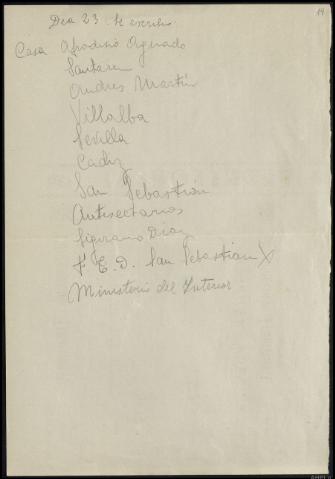 14
Dia 23 se escribio
Casa Afrodisio Aguado
Santaren
Andres Martín
Villalba
Sevilla
Cadiz
San Sebastian
Antisectarios
Díaz
F. E. D. San Sebastian X
Ministerio del Interior